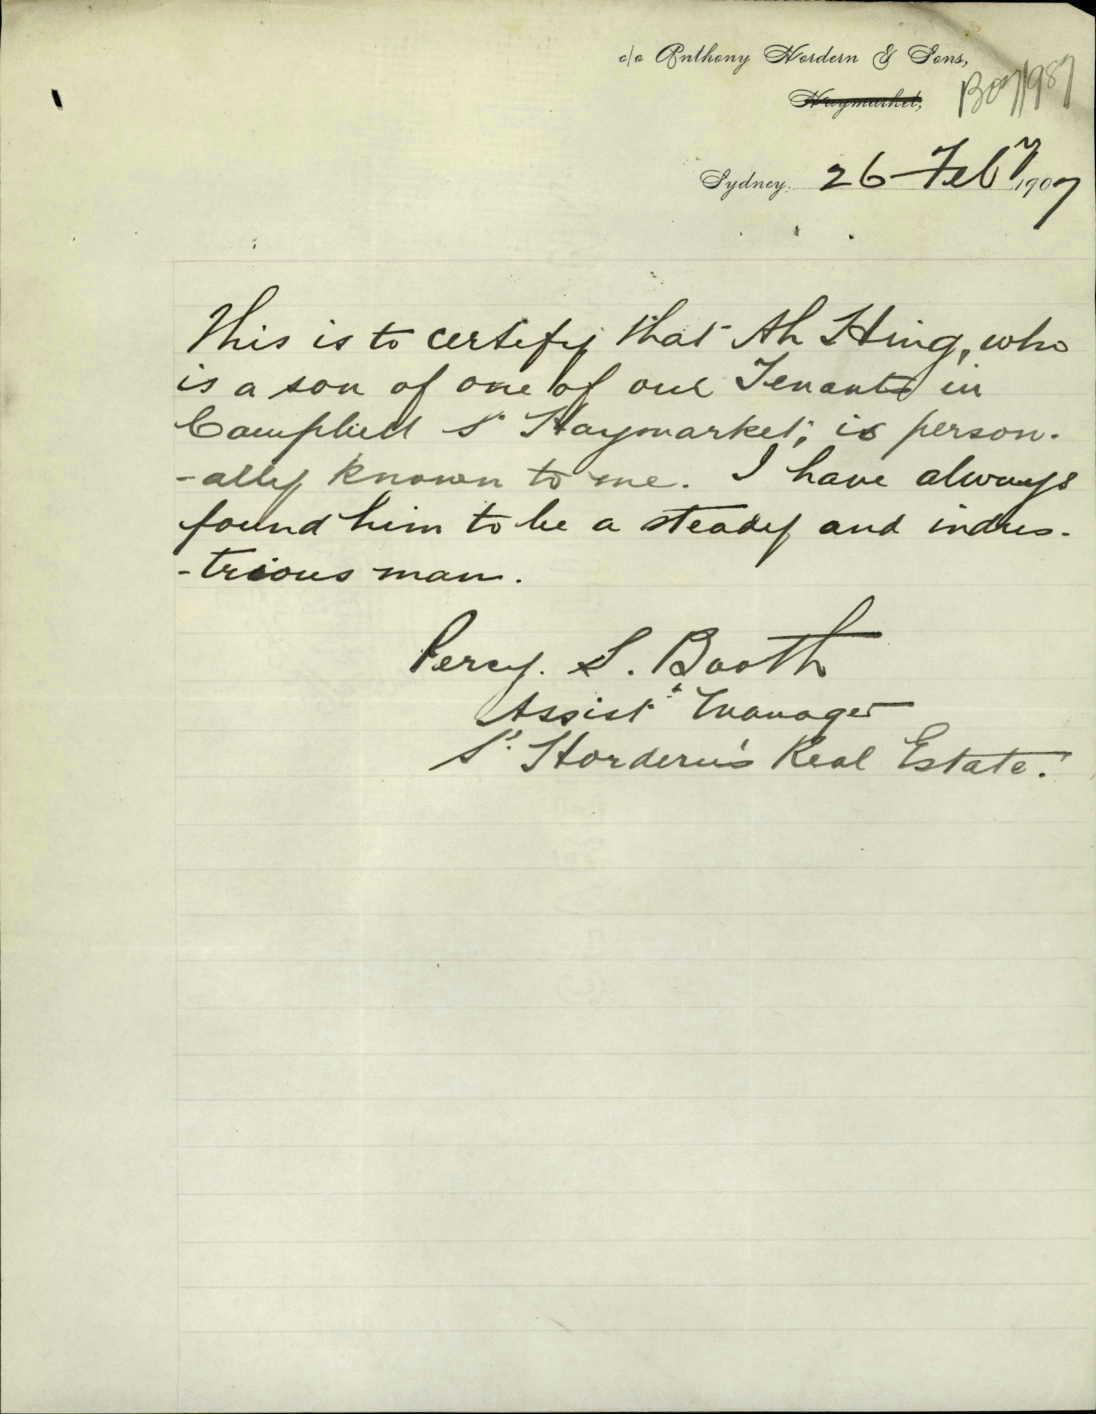 c/o Anthony Hordern & Sons,
Haymarket,
B07/987
Sydney. 26 Feby 1907
This is to certify that Ah Hing, who
is a son of one of our Tenants in
Campbell St Haymarket, is person-
-ally known to me. I have always
found him to be a steady and indus-
-trious man.
Percy. S. Booth
Assist Manager
S. Hordern's Real Estate.